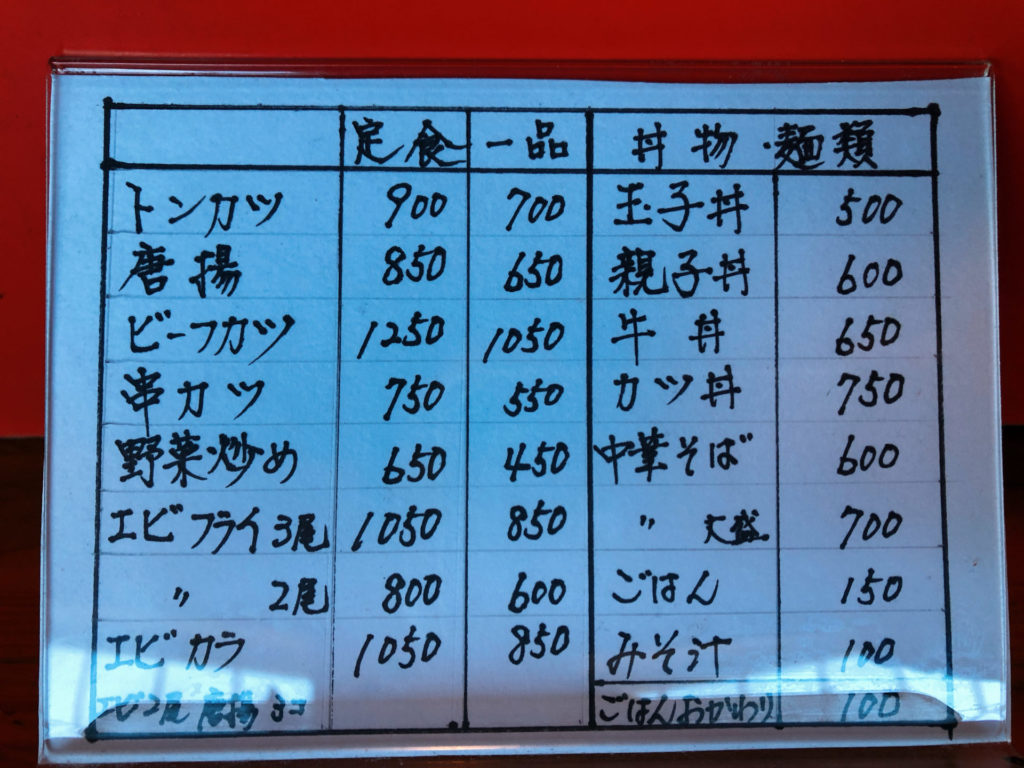 定食 一品 丼物・麺類
トンカツ 900 700 玉子丼 500
唐揚 850 650 親子丼 600
ビーフカツ 1250 1050 牛丼 650
串カツ 750 550 カツ丼 750
野菜炒め 650 450 中華そば 600
エビフライ3尾 1050 850 〃 大盛 700
〃 2尾 800 600 ごはん 150
エビカラ 1050 850 みそ汁 100
エビ2尾 唐揚3コ ごはんおかわり 100